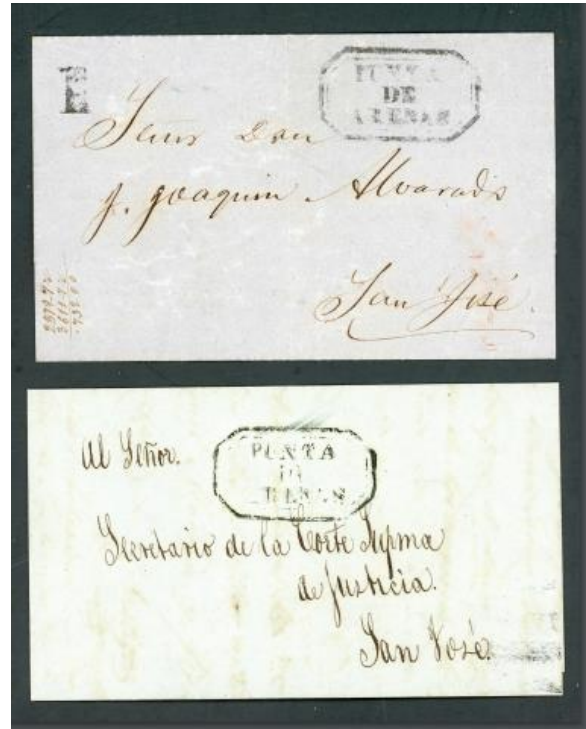 PUNTA
DE
ARENAS
Señor Don
J. Joaquin Alvarado
San José.
PUNTA
DE
ARENAS
Al Señor.
Secretario de la Corte Supma
de Justicia.
San José.